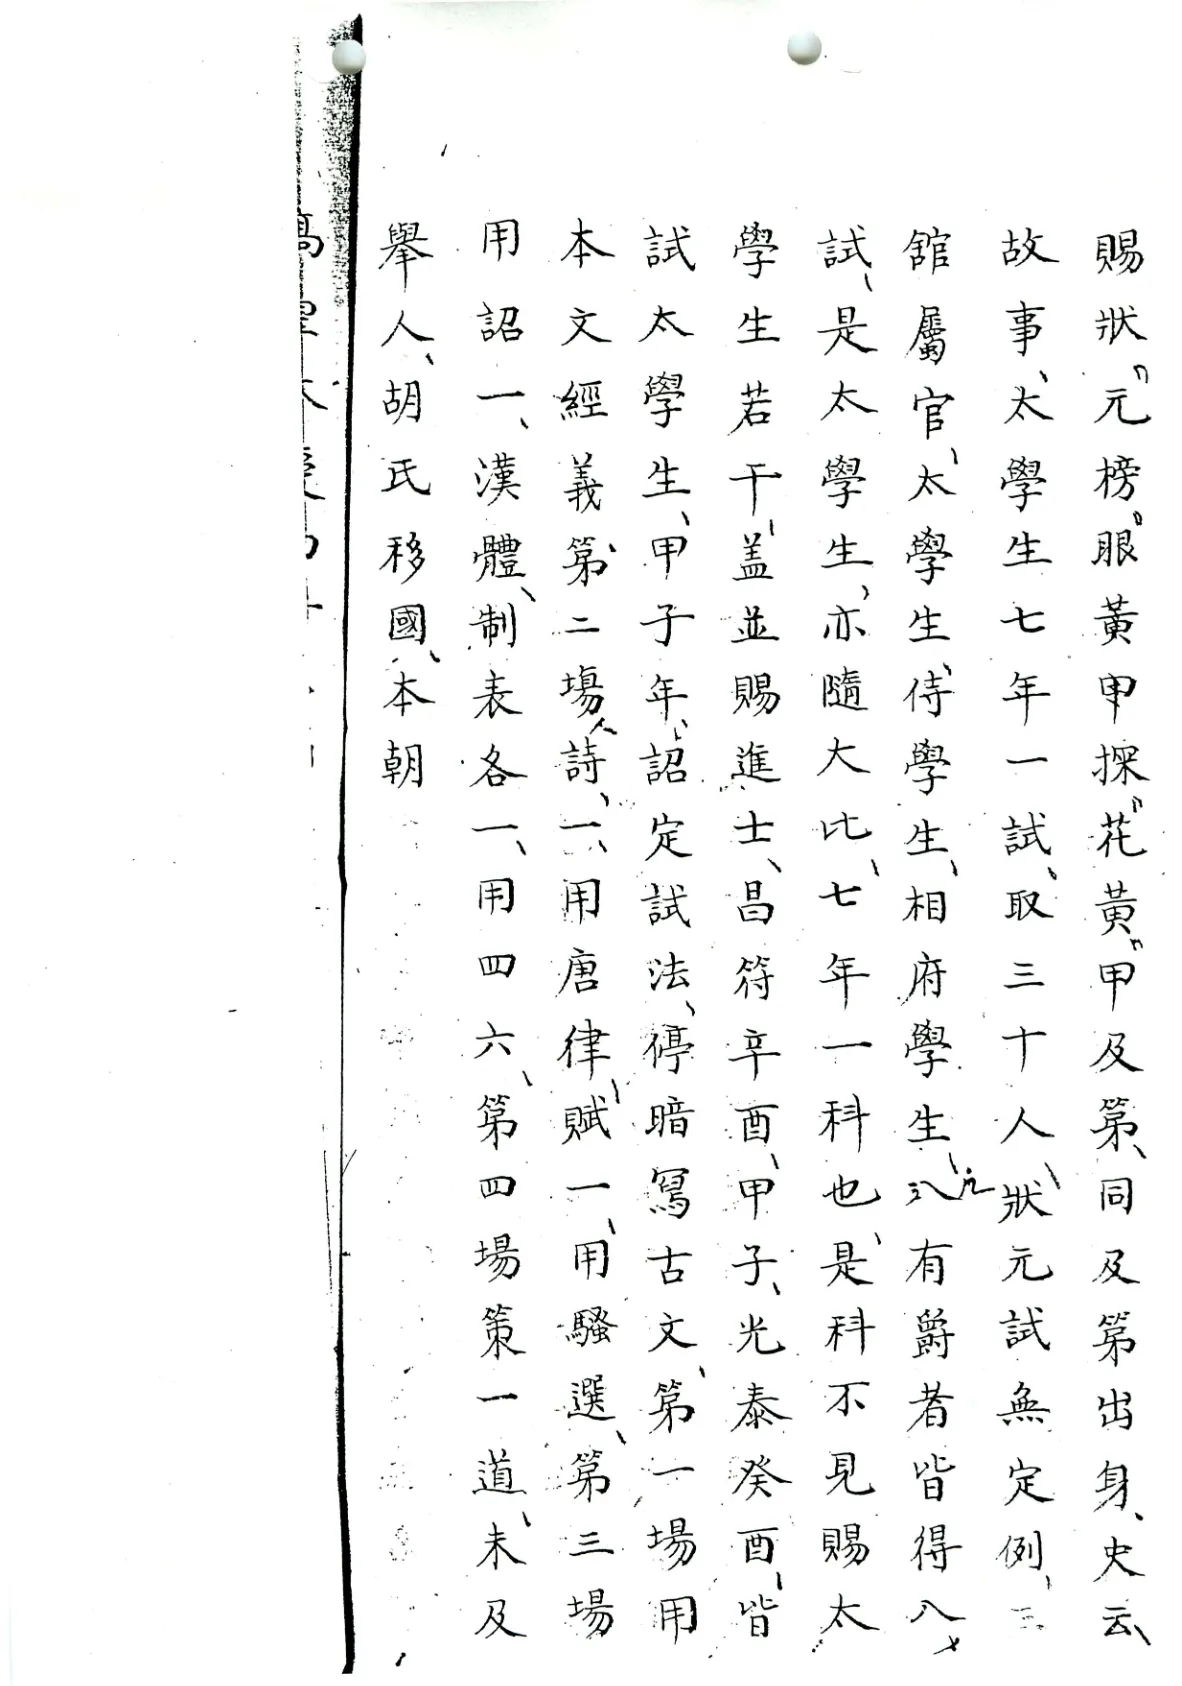 賜狀元榜眼黃甲探花黃甲及第同及第出身史云
故事太學生七年一試取三十人狀元試無定例三
舘屬官太學生侍學生相府學生凡有爵者皆得入
試是太學生亦隨大比七年一科也是科不見賜太
學生若干盖並賜進士昌符辛酉甲子光泰癸酉皆
試太學生甲子年詔定試法停暗寫古文第一場用
本文經義第二場詩一用唐律賦一用騷選第三場
用詔一漢體制表各一用四六第四場策一道未及
舉人胡氏移國本朝